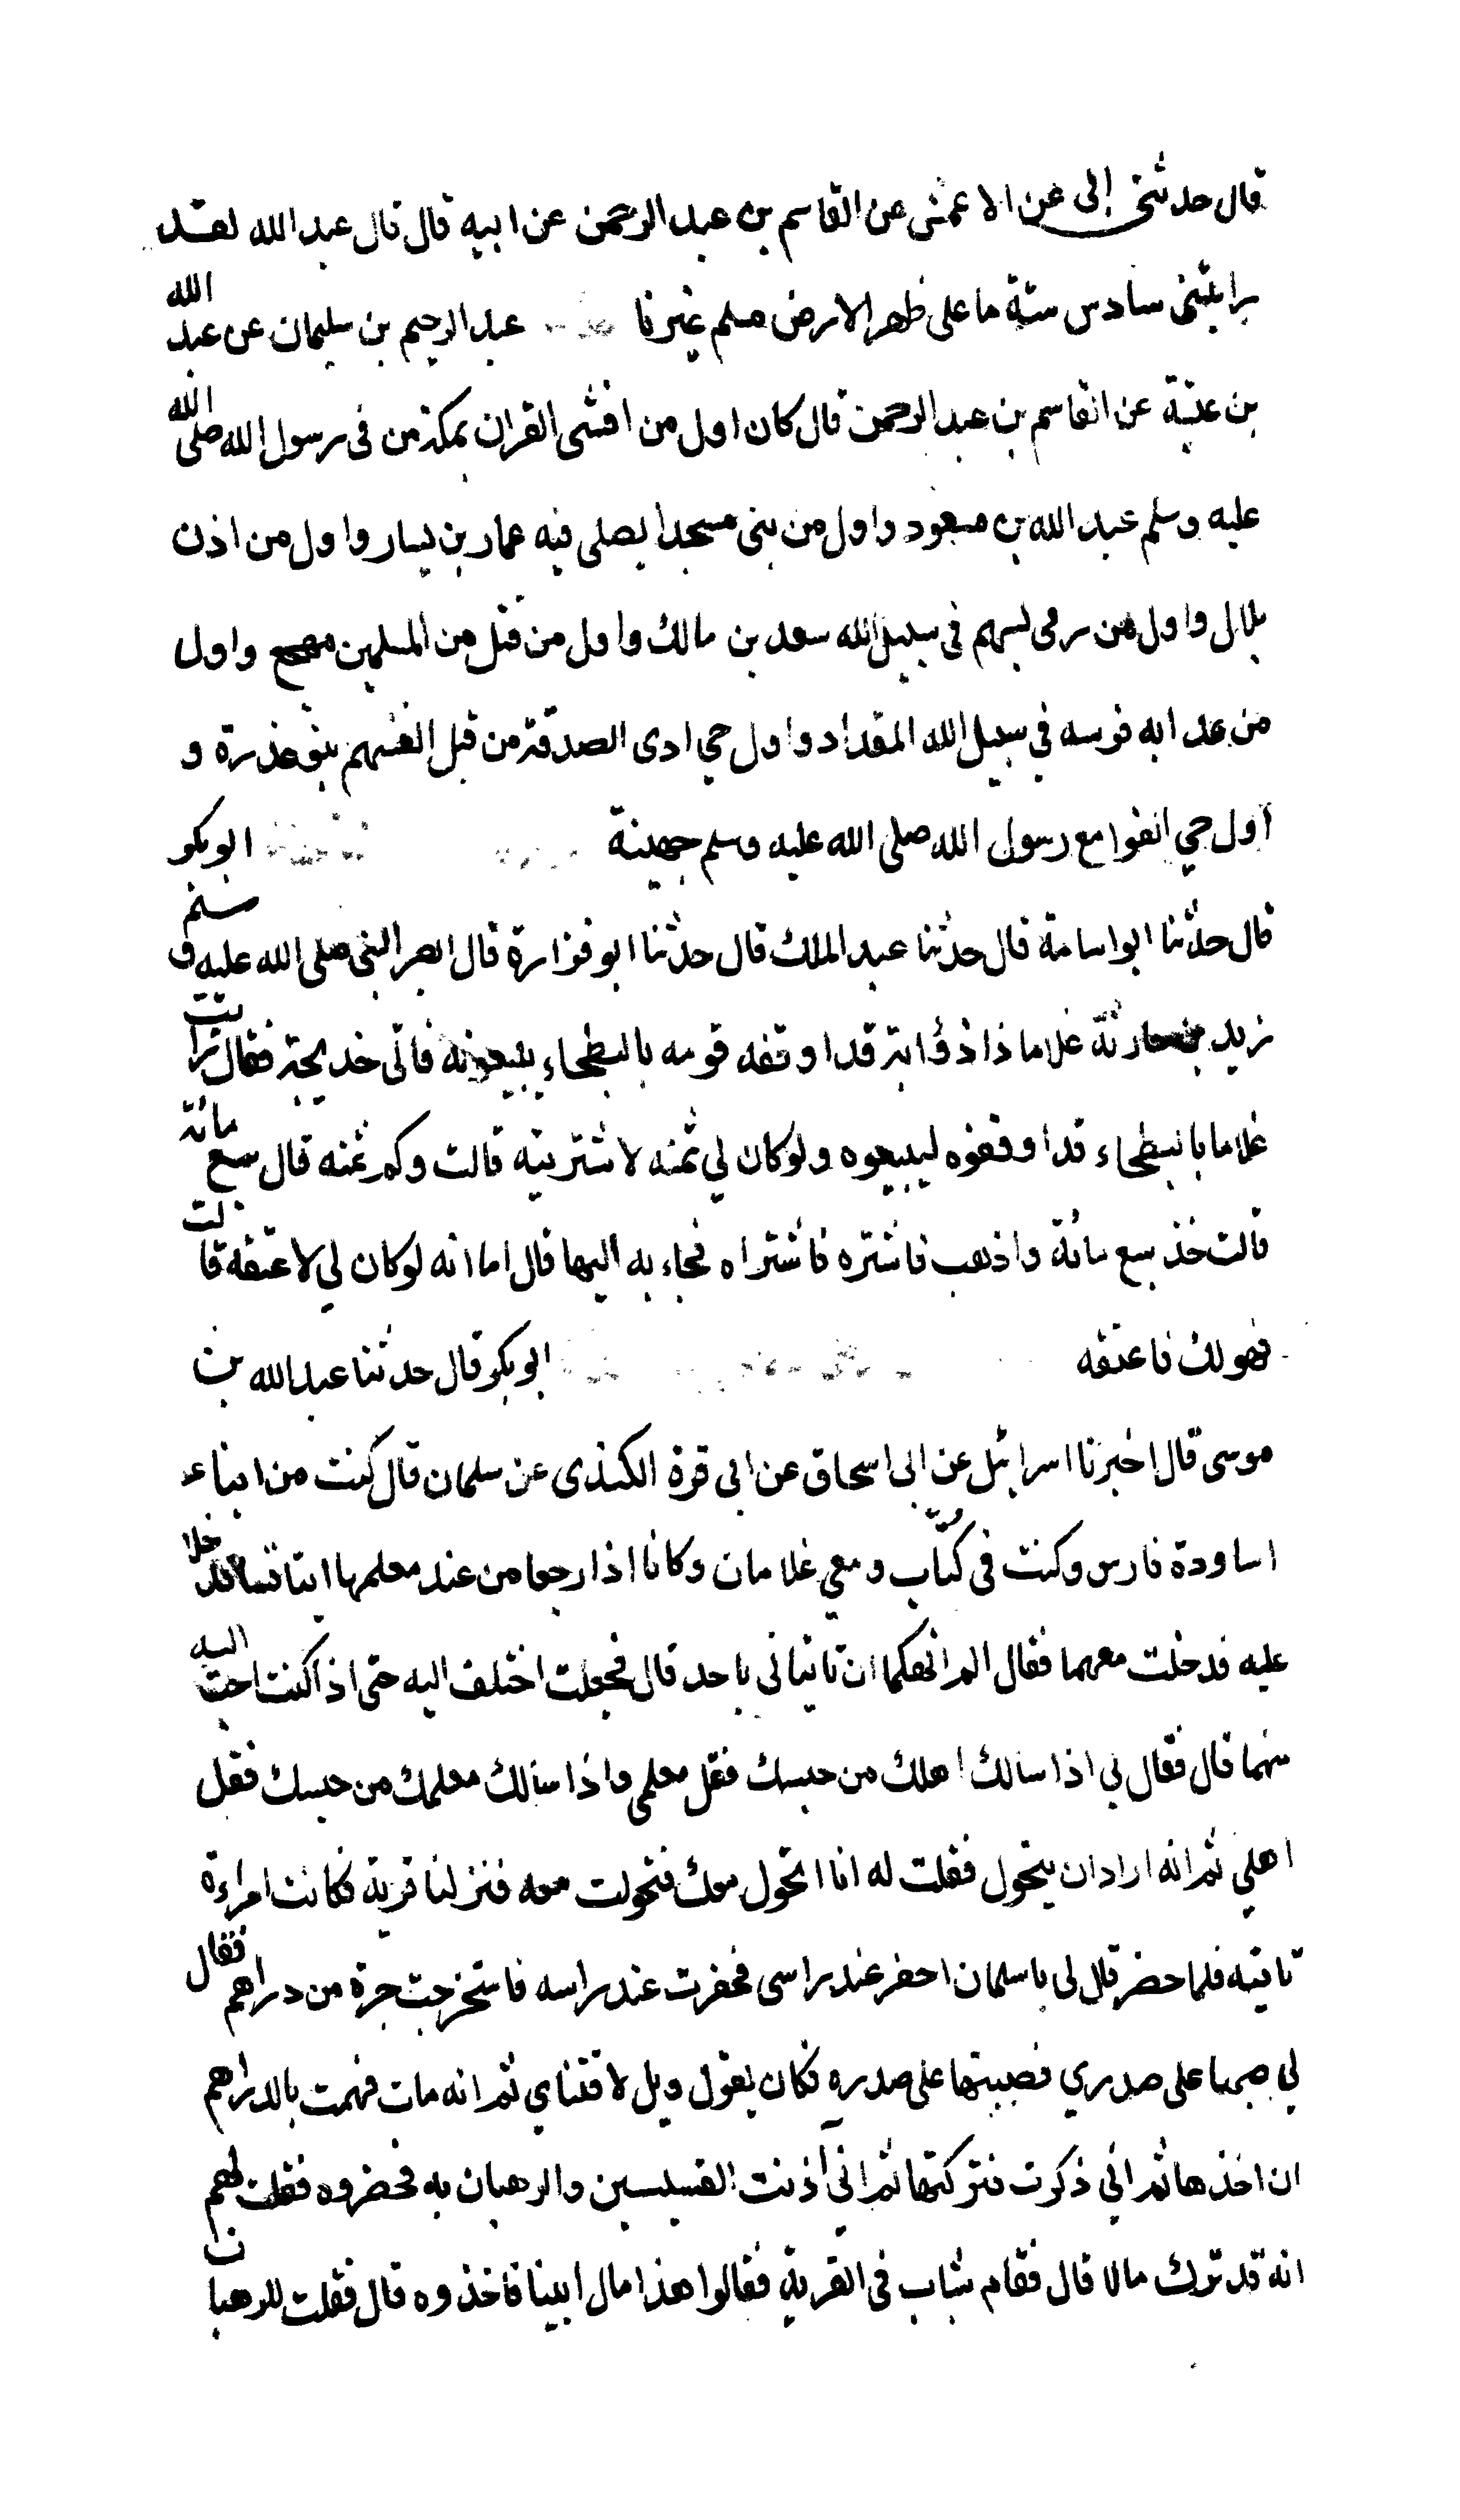 قال حدثني ابى عن الاعمش عن القاسم بن عبد الرحمن عن ابيه قال قال عبد الله لقد
رايتنى سادس ستة ما على ظهر الارض مسلم غيرنا عبد الرحيم بن سليمان عن عبد الله
بن عتبة عن القاسم بن عبد الرحمن قال كان اول من افشى القران بمكة من فى رسول الله صلى الله
عليه وسلم عبد الله بن مسعود واول من بنى مسجدا يصلى فيه عمار بن ياسر واول من اذن
بلال واول من رمى بسهم فى سبيل الله سعد بن مالك واول من قتل من المسلمين مهجع واول
من عدا به فرسه في سبيل الله المقداد واول حي ادى الصدقة من قبل انفسهم بنو عذرة و
أول حي الفوا مع رسول الله صلى الله عليه وسلم جهينة ابو بكر
قال حدثنا ابو اسامة قال حدثنا عبد الملك قال حدثنا ابو فزارة قال ابصر النبى صلى الله عليه وسلم
زيد بن حارثة غلاما ذا ذؤابة قد اوقفه قومه بالبطحاء يبيعونه فاتى خديجة فقال رايت
غلاما بالبطحاء قد اوقفوه ليبيعوه ولو كان لي ثمنه لاشتريته قالت وكم ثمنه قال سبع مائة
قالت خذ سبع مائة واذهب فاشتره فاشتراه فجاء به اليها قال اما انه لو كان لي لاعتقه قالت
فهو لك فاعتقه ابو بكر قال حدثنا عبد الله بن
موسى قال اخبرنا اسرائيل عن ابى اسحاق عن ابى قرة الكندى عن سلمان قال كنت من ابناء
اساودة فارس وكنت فى كتّاب ومعي غلامان وكانا اذا رجعا من عند معلمهما اتيا قسا فدخلا
عليه فدخلت معهما فقال الم انهكما ان تاتيانى باحد قال فجعلت اختلف اليه حتى اذا كنت احب اليه
منهما قال فقال لي اذا سالك اهلك من حبسك فقل معلمى واذا سالك معلمك من حبسك فقل
اهلي ثم انه اراد ان يتحول فقلت له انا اتحول معك فتحولت معه فنزلنا قرية فكانت امراءة
تاتيه فلما حضر قال لى يا سلمان احفر عند راسى فحفرت عند راسه فاستخرجت جرة من دراهم فقال
لي صبها على صدري فصببتها على صدره فكان يقول ويل لاقتناي ثم انه مات فهممت بالدراهم
ان اخذها ثم اني ذكرت فتركتها ثم انى أذنت القسيسين والرهبان به فحضروه فقلت لهم
انه قد ترك مالا قال فقام شباب فى القرية فقالوا هذا مال ابينا فاخذوه قال فقلت للرهبان